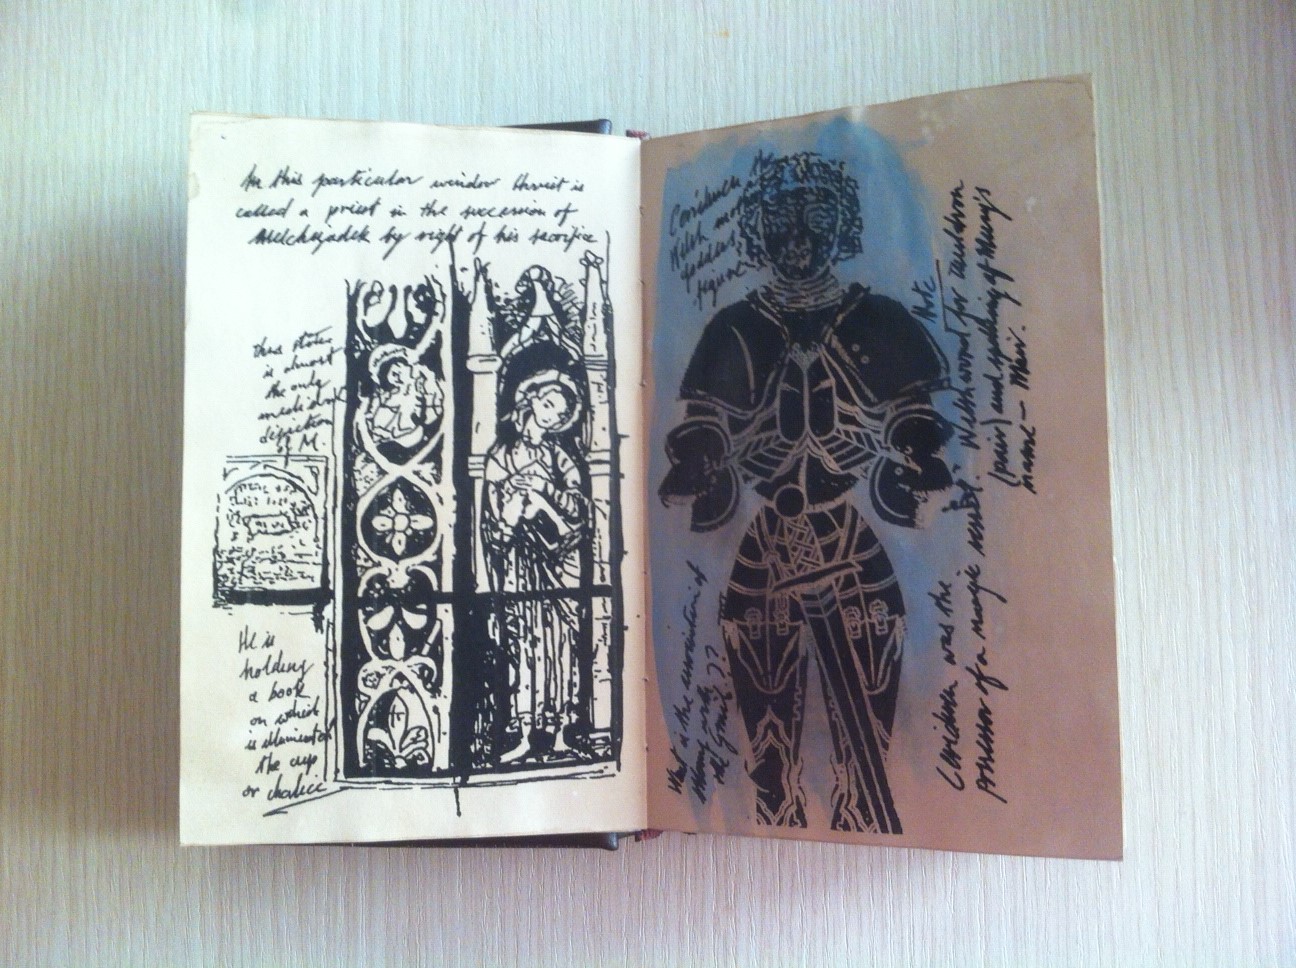 In this particular window Christ is
called a priest in the succession of
Melchizadek by right of his sacrifice
this stone
is almost
the only
medieval
depiction
of M.
He is
holding
a book
on which
is illuminated
the cup
or chalice
Ceridwen the
Welsh mother
goddess
figure
What is the connection of
Henry with
the Grail??
Note
Welsh word for cauldron
(pair) and spelling of Henry's
name – Mair.
Ceridwen was the
possessor of a magic